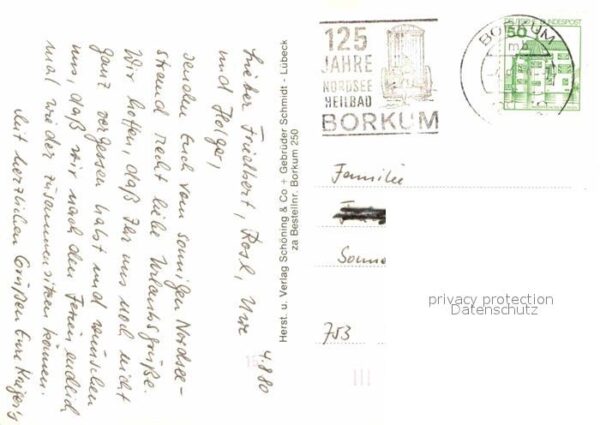 4.8.80
Lieber Friedbert, Rosl, Uwe
und Holger,
senden Euch vom sonnigen Nordsee-
strand recht liebe Urlaubsgrüße.
Wir hoffen, daß Ihr uns noch nicht
ganz vergessen habt und wünschen
uns, daß wir nach den Ferien endlich
mal wieder zusammensitzen können.
Mit herzlichen Grüßen Eure Kaiser's
Herst. u. Verlag Schöning & Co + Gebrüder Schmidt - Lübeck
za Bestellnr. Borkum 250
125
JAHRE
NORDSEE
HEILBAD
BORKUM
BORKUM
50
DEUTSCHE BUNDESPOST
Familie
Sonn
753
privacy protection
Datenschutz